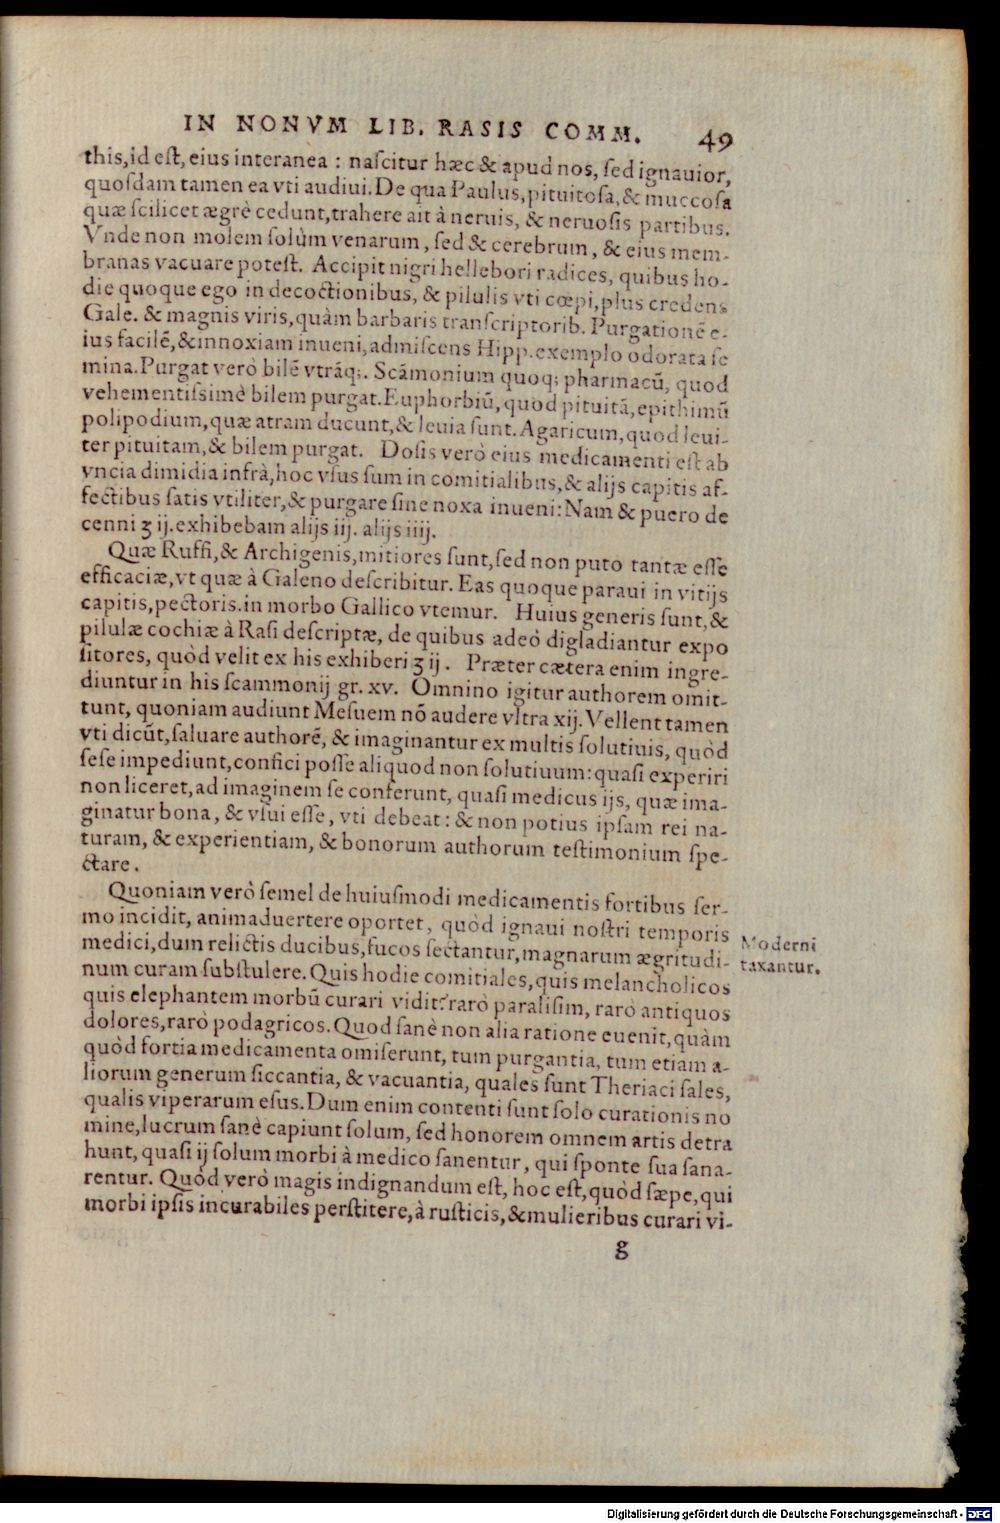 IN NONVM LIB. RASIS COMM. 49
this, id eſt, eius interanea : naſcitur hæc & apud nos, ſed ignauior,
quoſdam tamen ea vti audiui. De qua Paulus, pituitoſa, & muccoſa
quæ ſcilicet ægrè cedunt, trahere ait à neruis, & neruoſis partibus.
Vnde non molem ſolùm venarum, ſed & cerebrum, & eius mem-
branas vacuare poteſt. Accipit nigri hellebori radices, quibus ho-
die quoque ego in decoctionibus, & pilulis vti cœpi, plus credens
Gale. & magnis viris, quàm barbaris tranſcriptorib. Purgationẽ e-
ius facilẽ, & innoxiam inueni, admiſcens Hipp. exemplo odorata ſe
mina. Purgat verò bilẽ vtrãq;. Scãmonium quoq; pharmacũ, quod
vehementiſsimè bilem purgat. Euphorbiũ, quòd pituitã, epithimũ
polipodium, quæ atram ducunt, & leuia ſunt. Agaricum, quod leui-
ter pituitam, & bilem purgat. Doſis verò eius medicamenti eſt ab
vncia dimidia infrà, hoc vſus ſum in comitialibus, & alijs capitis af-
fectibus ſatis vtiliter, & purgare ſine noxa inueni: Nam & puero de
cenni ʒ ij. exhibebam alijs iij. alijs iiij.
Quæ Ruffi, & Archigenis, mitiores ſunt, ſed non puto tantæ eſſe
efficaciæ, vt quæ à Galeno deſcribitur. Eas quoque paraui in vitijs
capitis, pectoris. in morbo Gallico vtemur. Huius generis ſunt, &
pilulæ cochiæ à Raſi deſcriptæ, de quibus adeò digladiantur expo
ſitores, quòd velit ex his exhiberi ʒ ij. Præter cætera enim ingre-
diuntur in his ſcammonij gr. xv. Omnino igitur authorem omit-
tunt, quoniam audiunt Meſuem nõ audere vltra xij. Vellent tamen
vti dicũt, ſaluare authorẽ, & imaginantur ex multis ſolutiuis, quòd
ſeſe impediunt, confici poſſe aliquod non ſolutiuum: quaſi experiri
non liceret, ad imaginem ſe conferunt, quaſi medicus ijs, quæ ima-
ginatur bona, & vſui eſſe, vti debeat: & non potius ipſam rei na-
turam, & experientiam, & bonorum authorum teſtimonium ſpe-
ctare.
Quoniam verò ſemel de huiuſmodi medicamentis fortibus ſer-
mo incidit, animaduertere oportet, quòd ignaui noſtri temporis
medici, dum relictis ducibus, fucos ſectantur, magnarum ægritudi-
num curam ſubſtulere. Quis hodie comitiales, quis melancholicos
quis elephantem morbũ curari vidit? rarò paraliſim, rarò antiquos
dolores, rarò podagricos. Quod ſanè non alia ratione euenit, quàm
quòd fortia medicamenta omiſerunt, tum purgantia, tum etiam a-
liorum generum ſiccantia, & vacuantia, quales ſunt Theriaci ſales,
qualis viperarum eſus. Dum enim contenti ſunt ſolo curationis no
mine, lucrum ſanè capiunt ſolum, ſed honorem omnem artis detra
hunt, quaſi ij ſolum morbi à medico ſanentur, qui ſponte ſua ſana-
rentur. Quòd verò magis indignandum eſt, hoc eſt, quòd ſæpe, qui
morbi ipſis incurabiles perſtitere, à ruſticis, & mulieribus curari vi-
g
Moderni
taxantur.
Digitalisierung gefördert durch die Deutsche Forschungsgemeinschaft - DFG